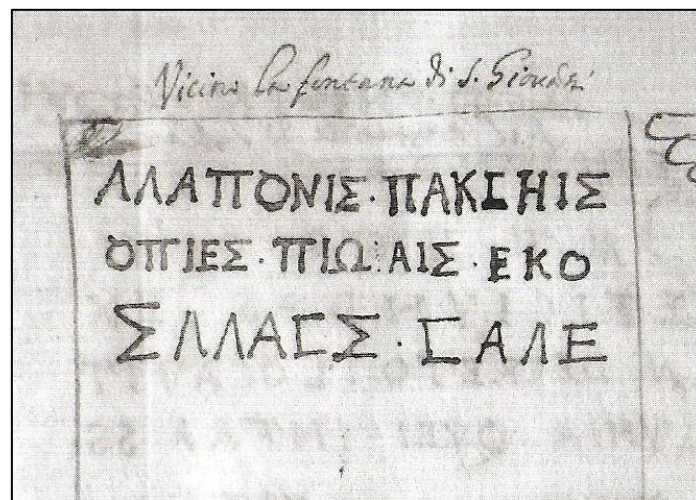 Vicino la fontana di S. Giouãni
ΛΛΑΠΟΝΙΣ·ΠΑΚϜΗΙΣ
ΟΠΙΕΣ·ΠΙΩ:ΑΙΣ·ΕΚΟ
ΣΛΛΑϜΣ·ϜΑΛΕ